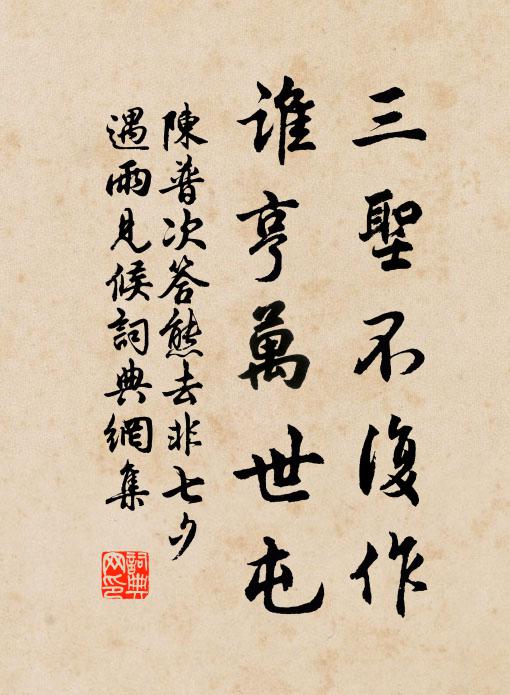 三聖不復作
誰亨萬世屯
陳普次答熊去非七夕
遇雨見候詞典網集
詞典網印